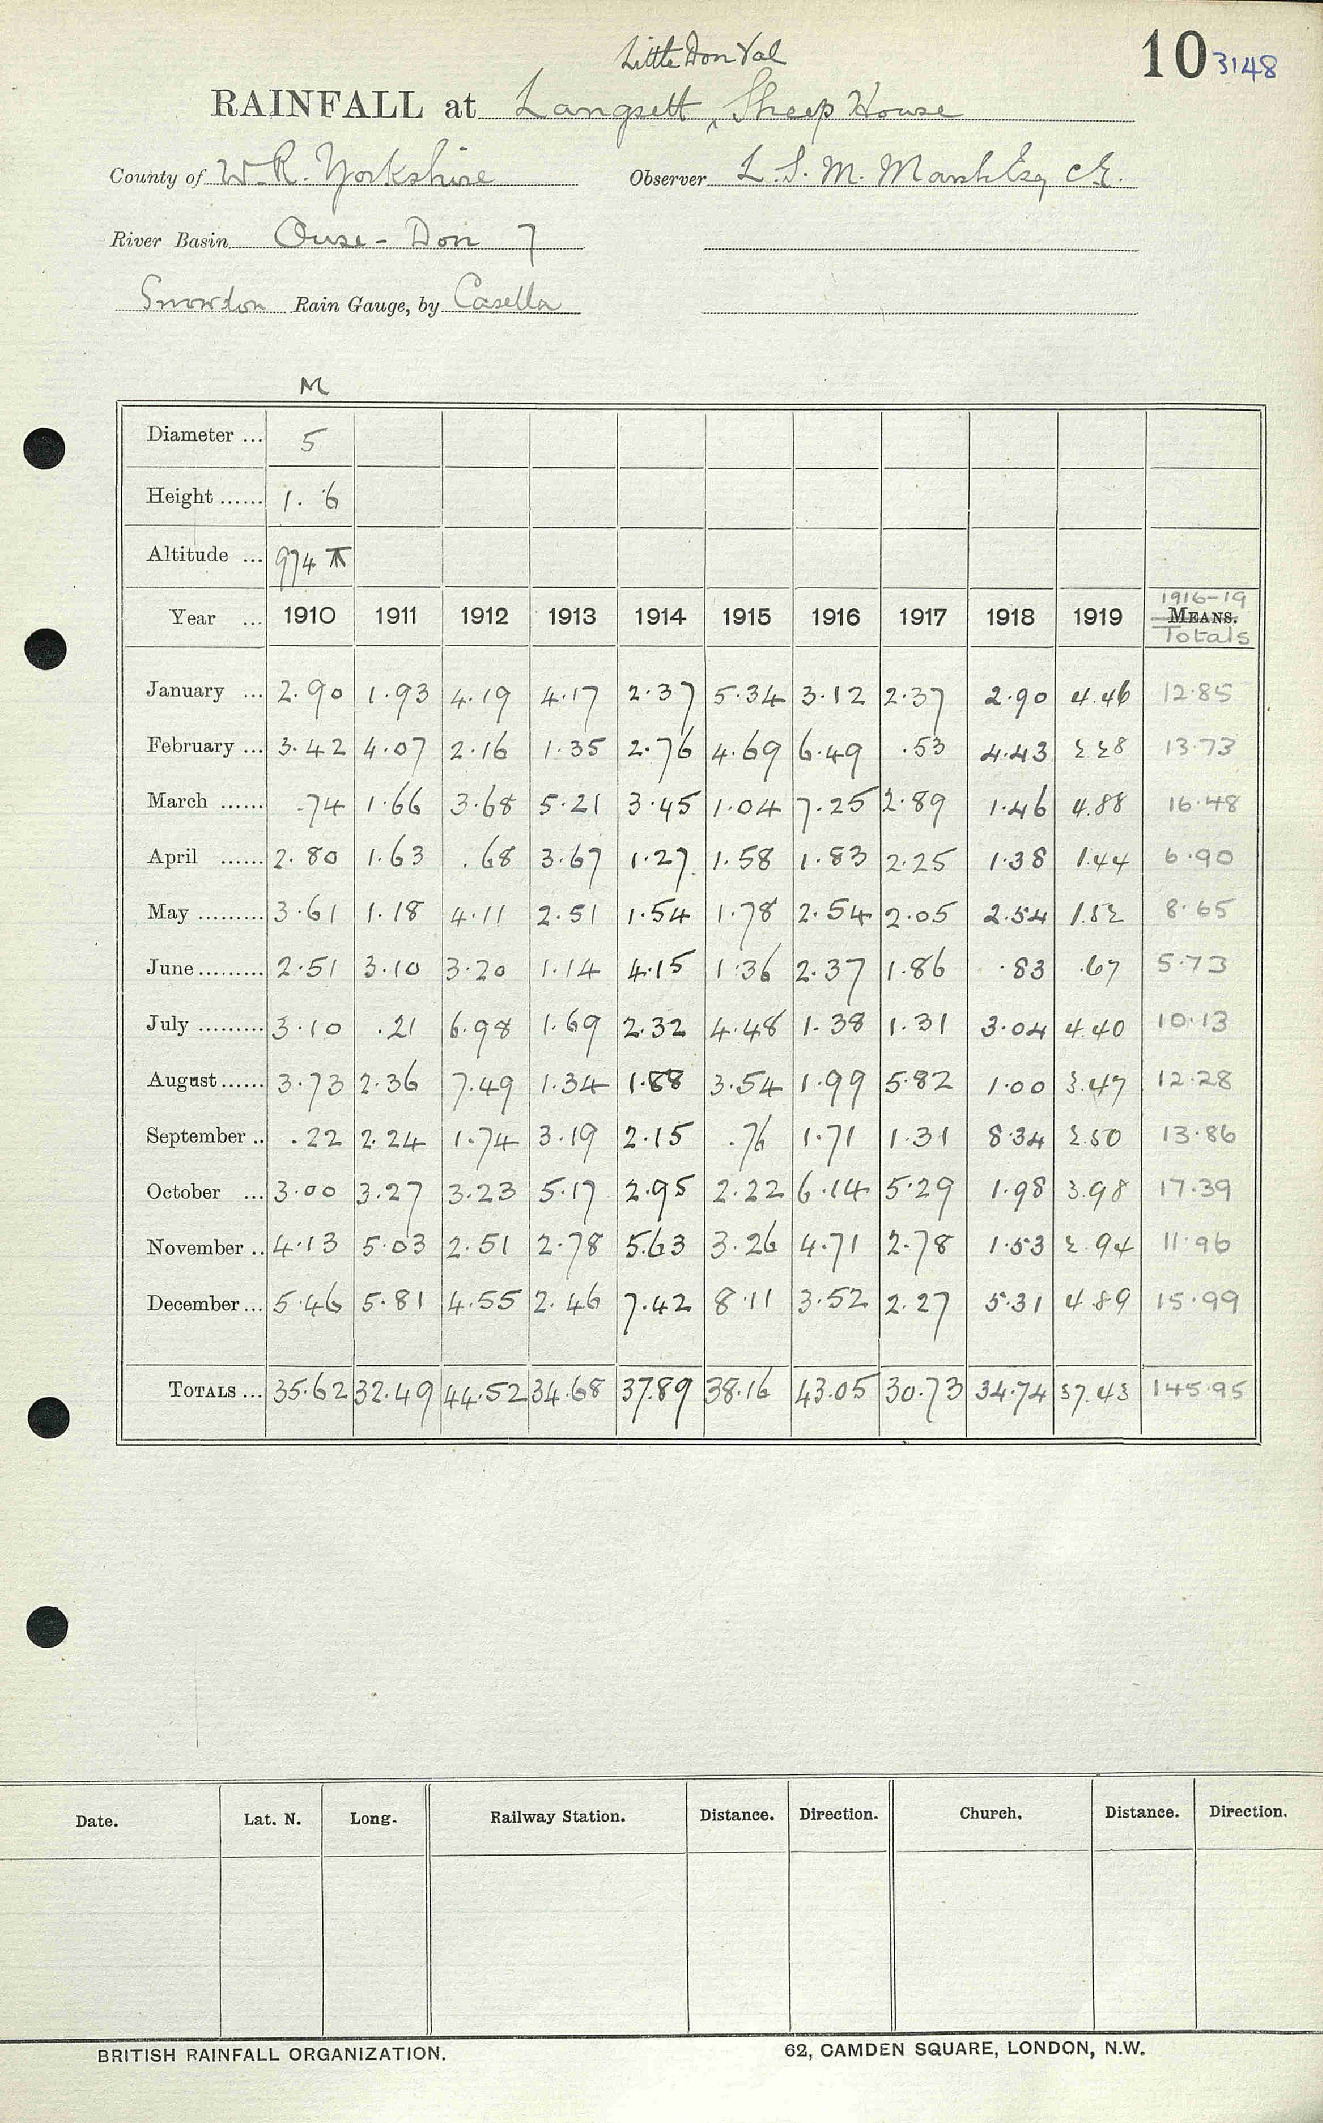 10 3148
Little Don Val
RAINFALL at Langsett ‸ Sheep House
County of W.R. Yorkshire Observer L.S.M. Marsh Esq C.E.
River Basin Ouse - Don 7
Snowdon Rain Gauge, by Casella
M
Diameter ... 5
Height ...... 1. 6
Altitude ... 974
1916-19
Year ... 1910 1911 1912 1913 1914 1915 1916 1917 1918 1919 MEANS.
Totals
January ... 2.90 1.93 4.19 4.17 2.37 5.34 3.12 2.37 2.90 4.46 12.85
February ... 3.42 4.07 2.16 1.35 2.76 4.69 6.49 .53 4.43 2.28 13.73
March ...... .74 1.66 3.68 5.21 3.45 1.04 7.25 2.89 1.46 4.88 16.48
April ...... 2.80 1.63 .68 3.67 1.27 1.58 1.83 2.25 1.38 1.44 6.90
May ......... 3.61 1.18 4.11 2.51 1.54 1.78 2.54 2.05 2.54 1.52 8.65
June ......... 2.51 3.10 3.20 1.14 4.15 1.36 2.37 1.86 .83 .67 5.73
July ......... 3.10 .21 6.98 1.69 2.32 4.48 1.38 1.31 3.04 4.40 10.13
August ...... 3.73 2.36 7.49 1.34 1.88 3.54 1.99 5.82 1.00 3.47 12.28
September .. .22 2.24 1.74 3.19 2.15 .76 1.71 1.31 8.34 2.50 13.86
October ... 3.00 3.27 3.23 5.17 2.95 2.22 6.14 5.29 1.98 3.98 17.39
November .. 4.13 5.03 2.51 2.78 5.63 3.26 4.71 2.78 1.53 2.94 11.96
December ... 5.46 5.81 4.55 2.46 7.42 8.11 3.52 2.27 5.31 4.89 15.99
TOTALS ... 35.62 32.49 44.52 34.68 37.89 38.16 43.05 30.73 34.74 37.43 145.95
Date. Lat. N. Long. Railway Station. Distance. Direction. Church. Distance. Direction.
BRITISH RAINFALL ORGANIZATION. 62, CAMDEN SQUARE, LONDON, N.W.